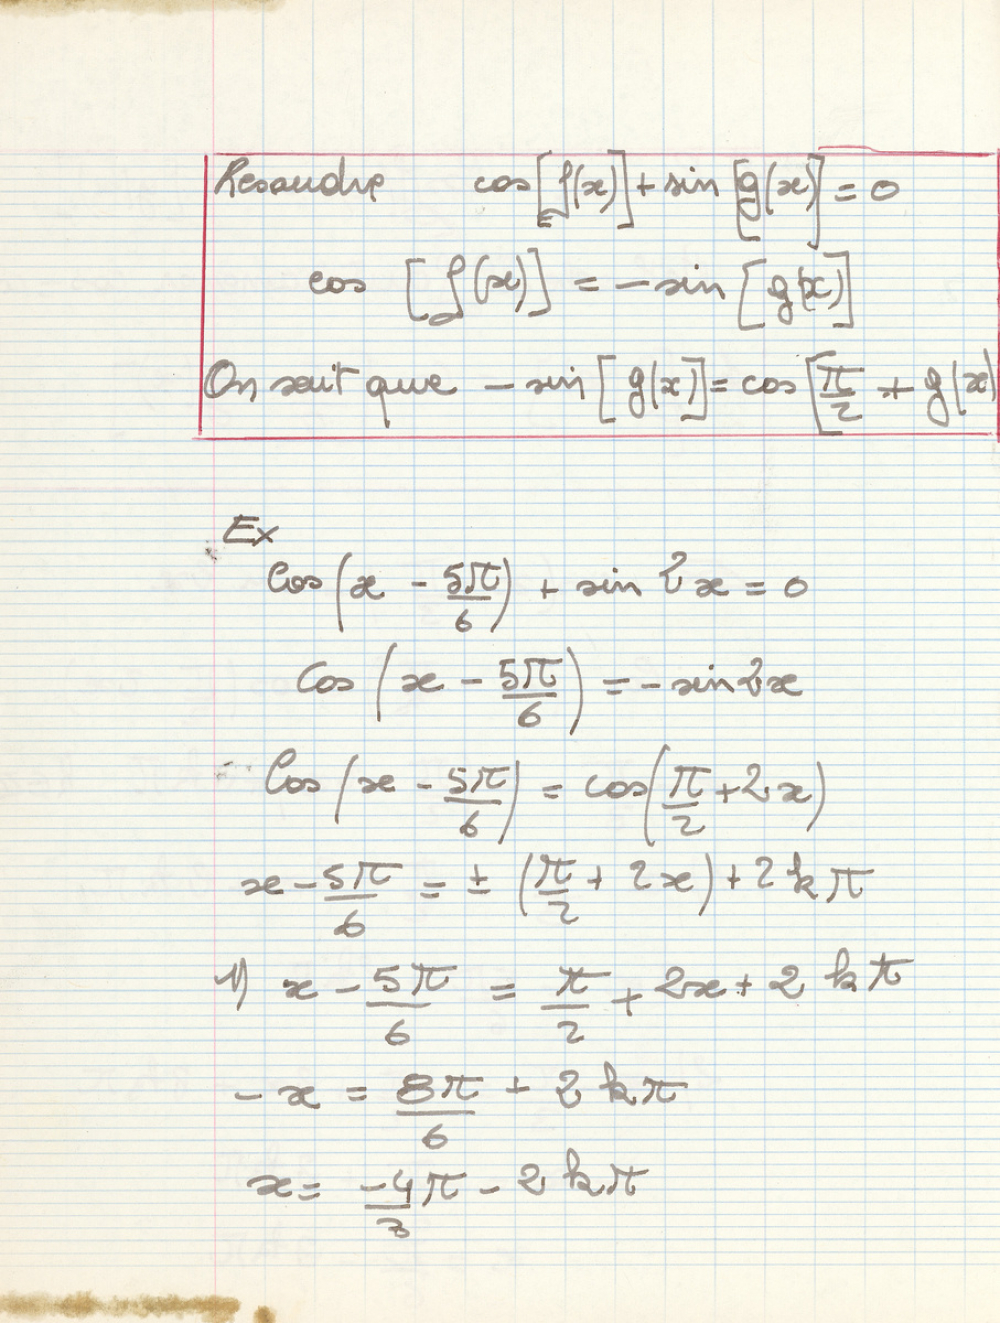 Resoudre cos[f(x)] + sin [g(x)] = 0
cos [f(x)] = - sin [g(x)]
On sait que - sin [g(x)] = cos [π/2 + g(x)
Ex
Cos (x - 5π/6) + sin 2x = 0
Cos (x - 5π/6) = - sin 2x
Cos (x - 5π/6) = cos (π/2 + 2x)
x - 5π/6 = ± (π/2 + 2x) + 2kπ
1) x - 5π/6 = π/2 + 2x + 2kπ
- x = 8π/6 + 2kπ
x = -4/3 π - 2kπ